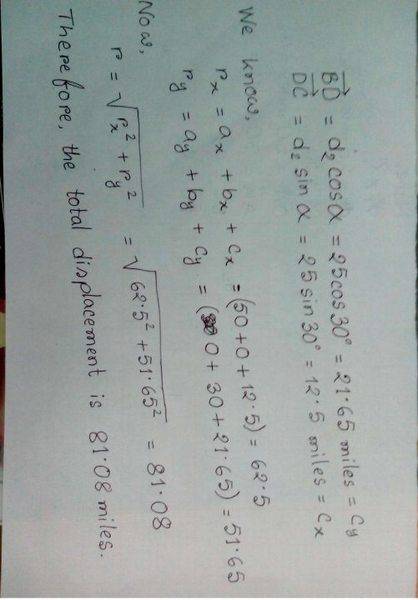 BD = d₂cosα = 25cos30° = 21·65 miles = Cy
DC = d₂sinα = 25sin30° = 12·5 miles = Cx
We know,
rx = ax + bx + cx = (50+0+12·5) = 62·5
ry = ay + by + cy = (0+30+21·65) = 51·65
Now,
r = √rx² + ry² = √62·5² + 51·65² = 81·08
Therefore, the total displacement is 81·08 miles.